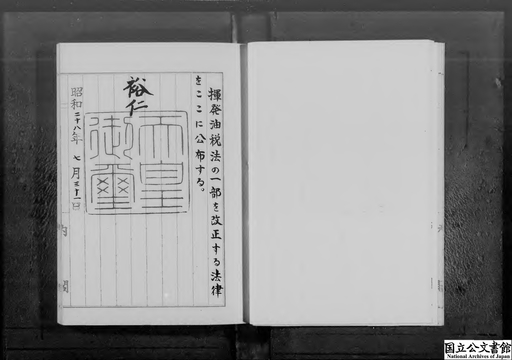 揮発油税法の一部を改正する法律
をここに公布する。
裕仁
天皇
御璽
昭和二十八年 七月三十一日
内閣
国立公文書館
National Archives of Japan